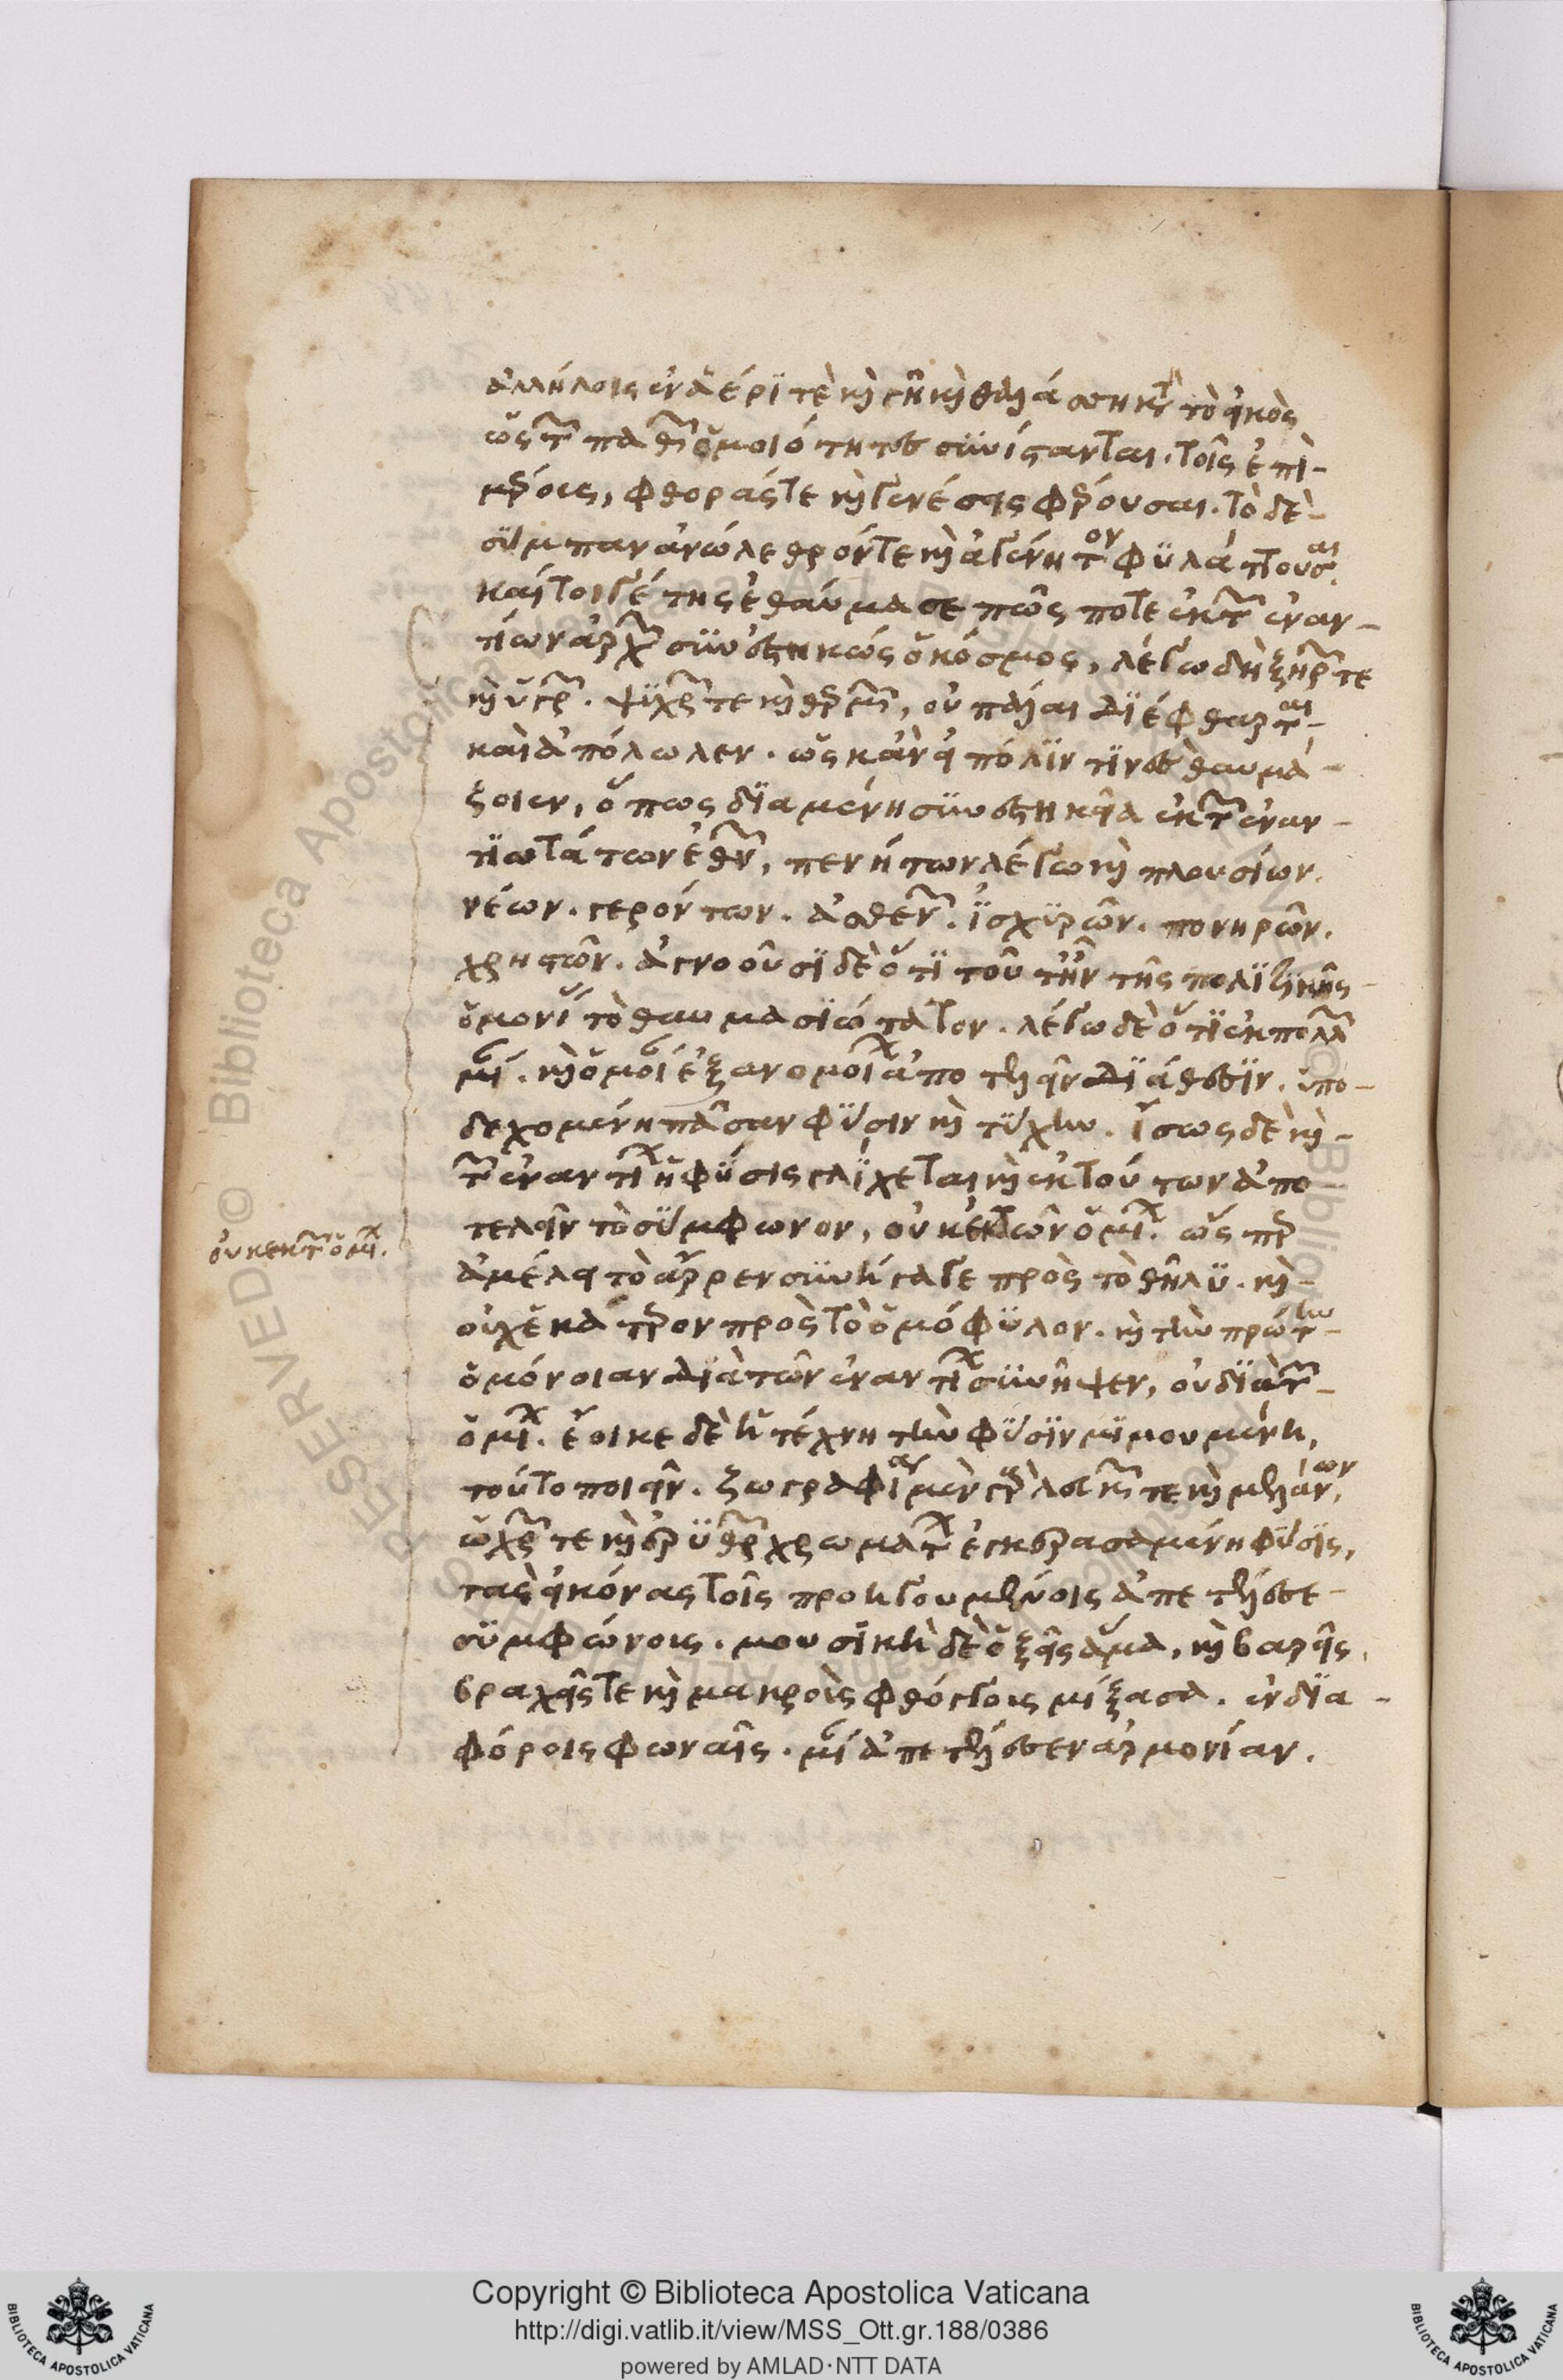 ἀλλήλοις ἐν ἀέρι τὲ καὶ γῆ καὶ θαλάσση κατὰ τὸ εἰκὸς
ὧς τῶν παθῶν ὁμοιότητες συνίστανται. τοῖς ἐπὶ-
μέρους, φθοράς τε καὶ γενέσεις φέρουσαι. τὸ δὲ-
σύμπαν ἀνώλεθρόν τε καὶ ἀγένητον φυλάττουσαι.
καίτοι γέ τις ἐθαύμασε πῶς ποτε ἐκ τῶν ἐναν-
τίων ἀρχῶν συνεστηκὼς ὁ κόσμος, λέγω δὴ ξηρῶν τε
καὶ ὑγρῶν. ψυχρῶν τε καὶ θερμῶν, οὐ πάλαι διέφθαρται-
καὶ ἀπόλωλεν. ὡς κἂν εἰ πόλιν τινὲς θαυμά-
ζοιεν, ὅπως διαμένη συνεστηκεῖα ἐκ τῶν ἐναν-
τιωτάτων ἐθνῶν, πενήτων λέγω καὶ πλουσίων.
νέων. γερόντων. ἀσθενῶν. ἰσχυρῶν. πονηρῶν.
χρηστῶν. ἀγνοοῦσι δὲ ὅτι τοῦτ' ἦν τῆς πολιτικῆς-
ὁμονοίας τὸ θαυμασιώτατον. λέγω δὲ ὅτι ἐκ πολλῶν
μίαν. καὶ ὁμοίαν ἐξ ἀνομοίων ἀποτελεῖν διάθεσιν. ὑπο-
δεχομένη πᾶσαν φύσιν καὶ τύχην. ἴσως δὲ καὶ-
τῶν ἐναντίων ἡ φύσις γλίχεται καὶ ἐκ τούτων ἀπο-
τελεῖν τὸ σύμφωνον, οὐκ ἐκ τῶν ὁμοίων. ὥσπερ
ἀμέλει τὸ ἄρρεν συνήγαγε πρὸς τὸ θῆλυ. καὶ-
οὐχ ἑκάτερον πρὸς τὸ ὁμόφυλον. καὶ τὴν πρώτην-
ὁμόνοιαν διὰ τῶν ἐναντίων συνῆψεν, οὐ διὰ τῶν-
ὁμοίων. ἔοικε δὲ ἡ τέχνη τὴν φύσιν μιμουμένη,
τοῦτο ποιεῖν. ζωγραφία μὲν γὰρ λευκῶν τε καὶ μελάνων,
ὠχρῶν τε καὶ ἐρυθρῶν χρωμάτων ἐγκερασαμένη φύσις,
τὰς εἰκόνας τοῖς προηγουμένοις ἀπετέλεσε-
συμφώνους. μουσικὴ δὲ ὀξεῖς ἅμα, καὶ βαρεῖς.
βραχεῖς τε καὶ μακροὺς φθόγγους μίξασα. ἐν δια-
φόροις φωναῖς. μίαν ἀπετέλεσεν ἁρμονίαν.
οὐκ ἐκ τῶν ὁμοίων.
Copyright © Biblioteca Apostolica Vaticana
http://digi.vatlib.it/view/MSS_Ott.gr.188/0386
powered by AMLAD·NTT DATA
BIBLIOTECA APOSTOLICA VATICANA
BIBLIOTECA APOSTOLICA VATICANA